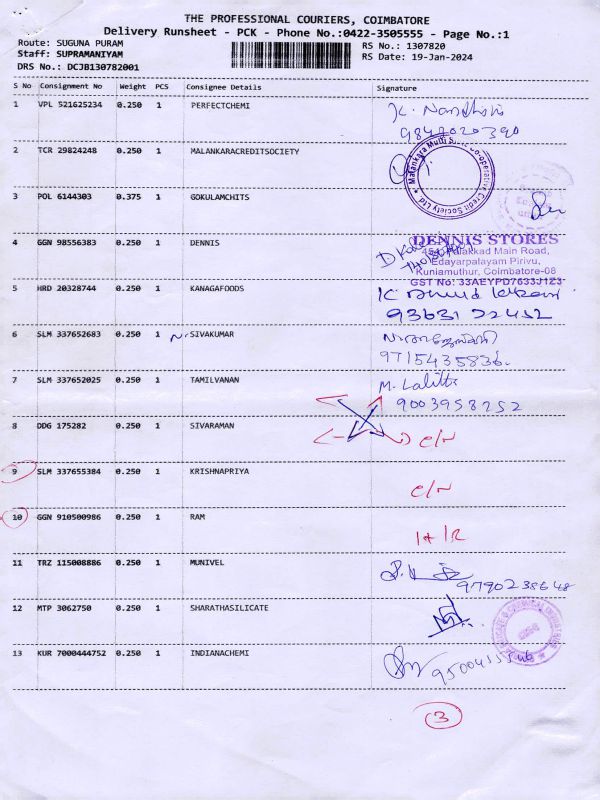 THE PROFESSIONAL COURIERS, COIMBATORE
Delivery Runsheet - PCK - Phone No.:0422-3505555 - Page No.:1
Route: SUGUNA PURAM
Staff: SUPRAMANIYAM
DRS No.: DCJB130782001
RS No.: 1307820
RS Date: 19-Jan-2024
S No Consignment No Weight PCS Consignee Details Signature
1 VPL 521625234 0.250 1 PERFECTCHEMI
2 TCR 29824248 0.250 1 MALANKARACREDITSOCIETY
Malankara Multi State Co-operative Credit Society Ltd
3 POL 6144303 0.375 1 GOKULAMCHITS
4 GGN 98556383 0.250 1 DENNIS
DENNIS STORES
Palakkad Main Road,
Edayarpalayam Pirivu,
Kuniamuthur, Coimbatore-08
GST No: 33AEYPD7633J1Z3
5 HRD 20328744 0.250 1 KANAGAFOODS
9363122452
6 SLM 337652683 0.250 1 N. SIVAKUMAR
9715435836.
7 SLM 337652025 0.250 1 TAMILVANAN M. Lalitha
9003958252
8 DDG 175282 0.250 1 SIVARAMAN C/N
9 SLM 337655384 0.250 1 KRISHNAPRIYA C/N
10 GGN 910500986 0.250 1 RAM
11 TRZ 115008886 0.250 1 MUNIVEL
9790238648
12 MTP 3062750 0.250 1 SHARATHASILICATE
13 KUR 7000444752 0.250 1 INDIANACHEMI
3